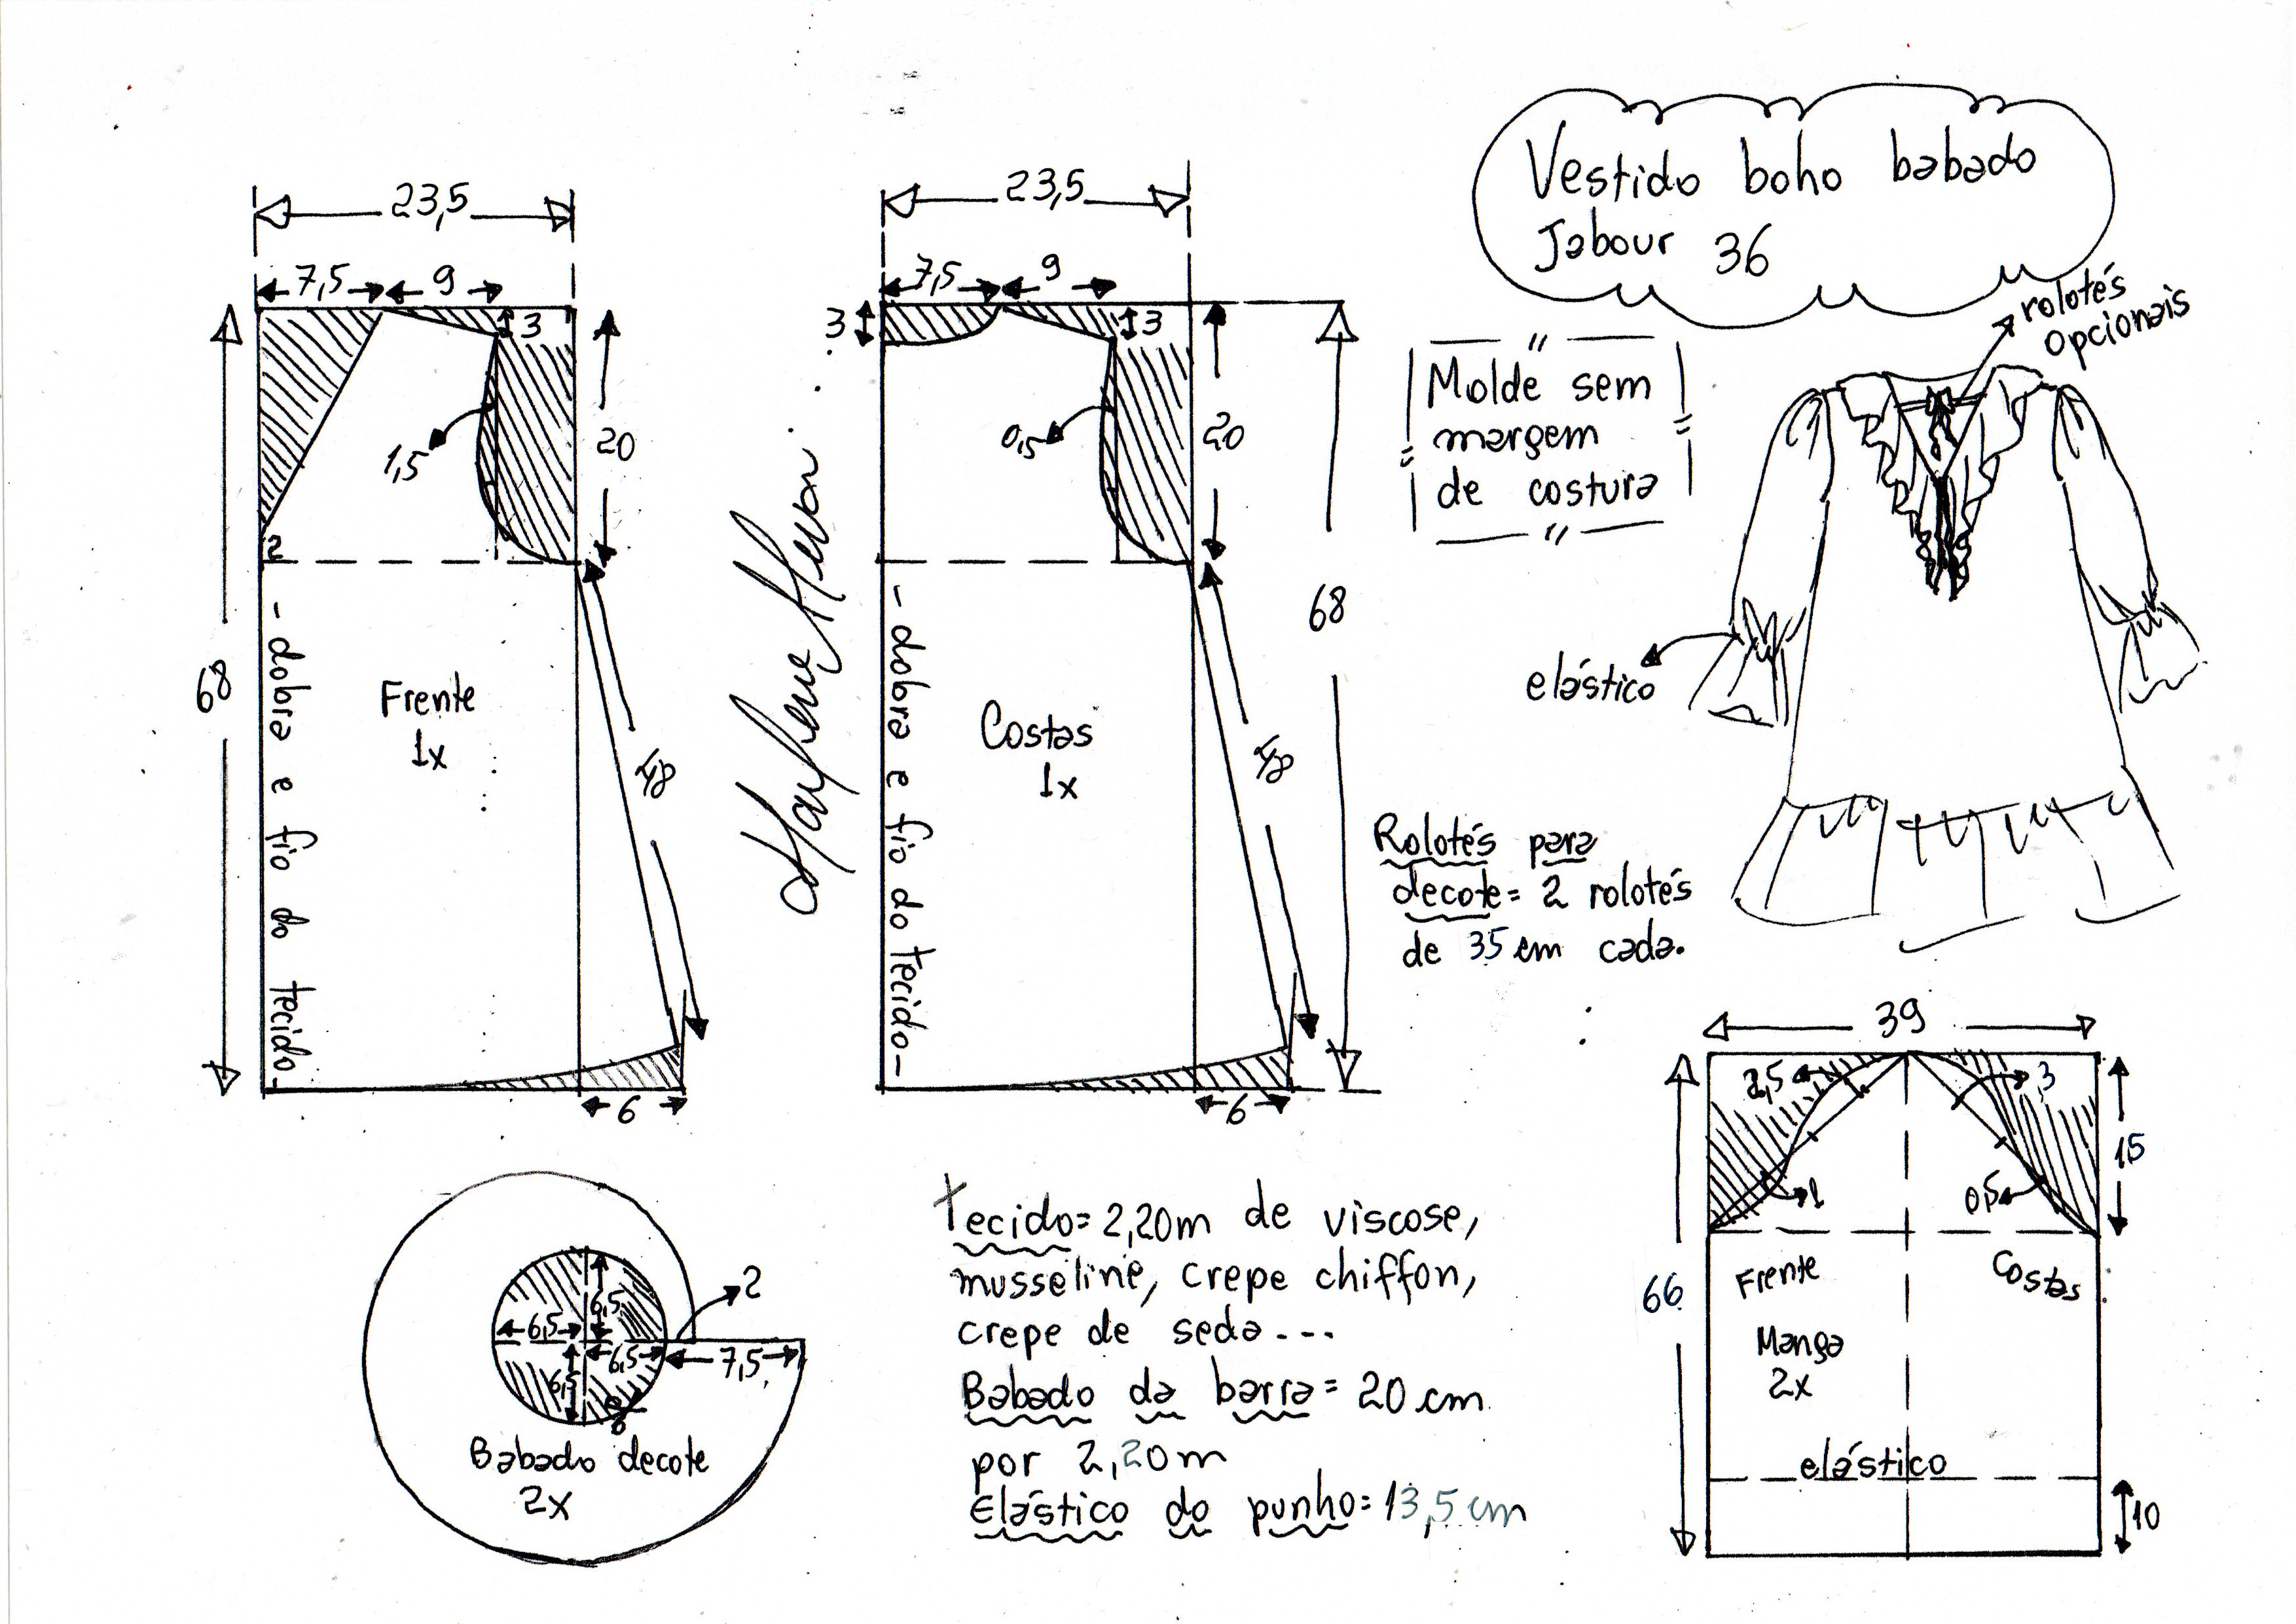 Vestido boho babado
Jabour 36
rolotés
opcionais
Molde sem
margem
de costura
elástico
Rolotés para
decote= 2 rolotés
de 35 cm cada.
23,5
7,5
9
3
1,5
20
2
68
48
6
- dobra e fio do tecido-
Frente
1x
Marlene Mukai
23,5
7,5
9
3
3
0,5
20
68
48
6
- dobra e fio do tecido-
Costas
1x
6,5
6,5
6,5
6,5
2
7,5
Babado decote
2x
Tecido= 2,20m de viscose,
musseline, crepe chiffon,
crepe de seda---
Babado da barra= 20 cm
por 2,20m
Elástico do punho= 13,5 cm
39
2,5
3
15
1
0,5
66
Frente
Costas
Manga
2x
elástico
10